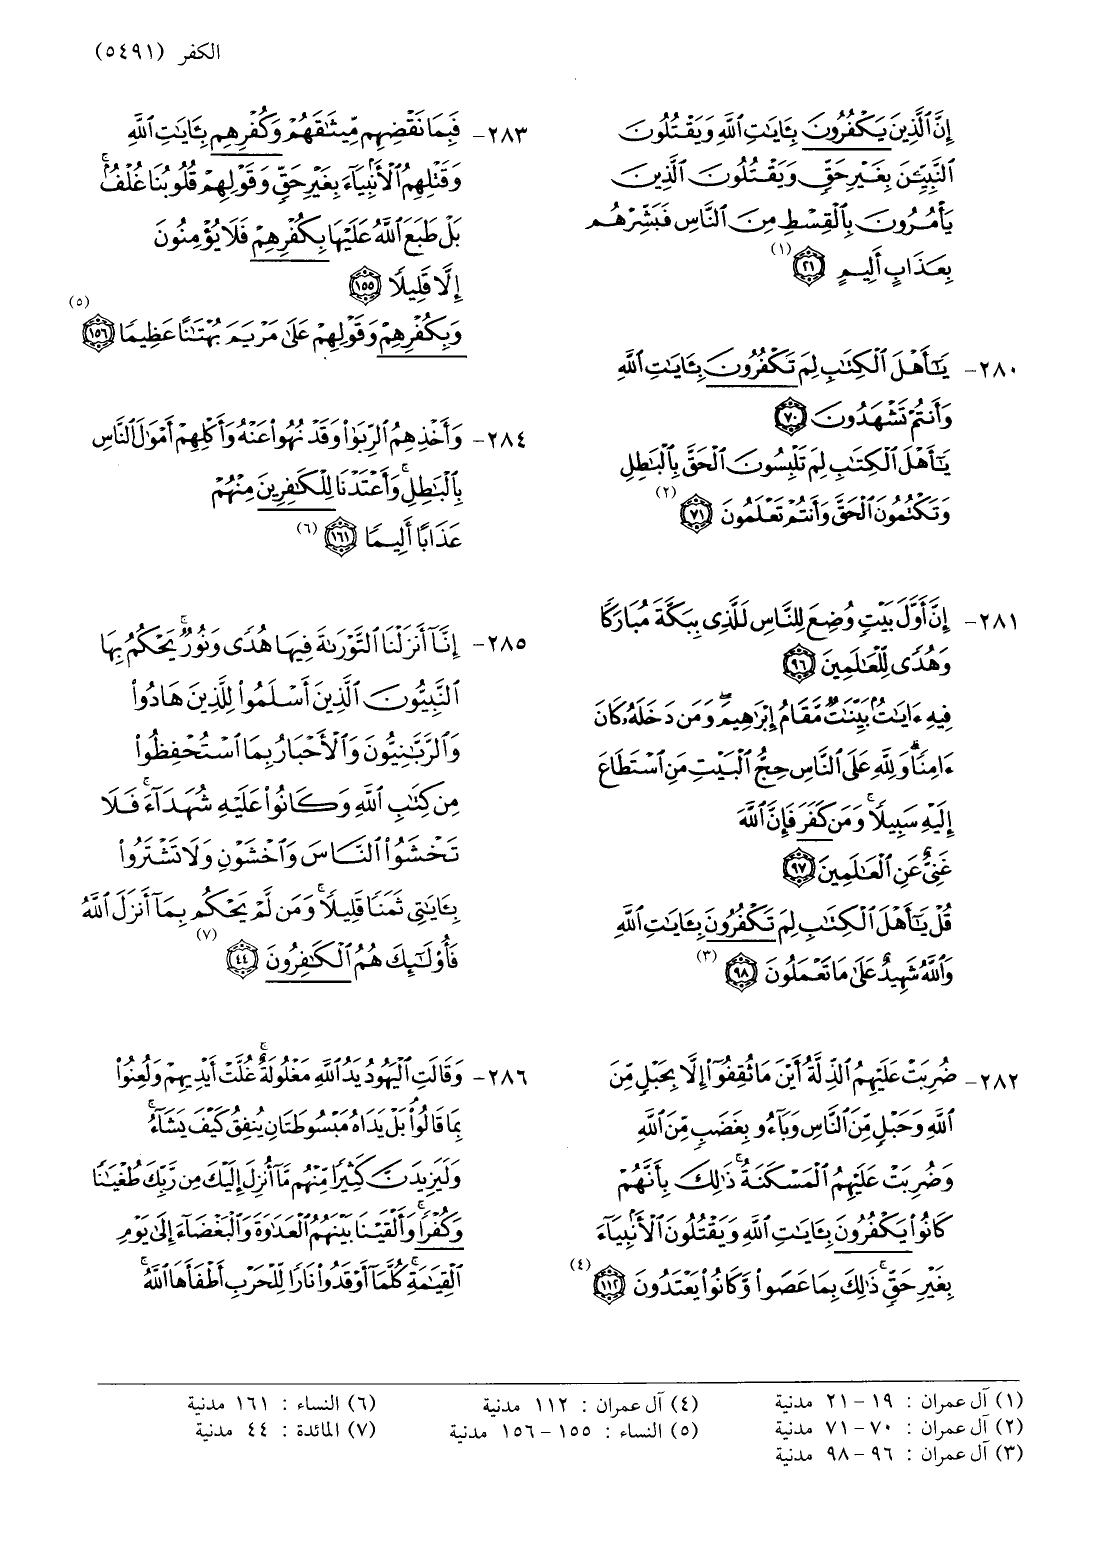 الكفر (٥٤٩١)
إِنَّ ٱلَّذِينَ يَكْفُرُونَ بِـَٔايَـٰتِ ٱللَّهِ وَيَقْتُلُونَ
ٱلنَّبِيِّـۧنَ بِغَيْرِ حَقٍّ وَيَقْتُلُونَ ٱلَّذِينَ
يَأْمُرُونَ بِٱلْقِسْطِ مِنَ ٱلنَّاسِ فَبَشِّرْهُم
بِعَذَابٍ أَلِيمٍ ﴿٢١﴾ (١)
٢٨٠- يَـٰٓأَهْلَ ٱلْكِتَـٰبِ لِمَ تَكْفُرُونَ بِـَٔايَـٰتِ ٱللَّهِ
وَأَنتُمْ تَشْهَدُونَ ﴿٧٠﴾
يَـٰٓأَهْلَ ٱلْكِتَـٰبِ لِمَ تَلْبِسُونَ ٱلْحَقَّ بِٱلْبَـٰطِلِ
وَتَكْتُمُونَ ٱلْحَقَّ وَأَنتُمْ تَعْلَمُونَ ﴿٧١﴾ (٢)
٢٨١- إِنَّ أَوَّلَ بَيْتٍ وُضِعَ لِلنَّاسِ لَلَّذِى بِبَكَّةَ مُبَارَكًا
وَهُدًى لِّلْعَـٰلَمِينَ ﴿٩٦﴾
فِيهِ ءَايَـٰتٌۢ بَيِّنَـٰتٌ مَّقَامُ إِبْرَٰهِيمَ ۖ وَمَن دَخَلَهُۥ كَانَ
ءَامِنًا ۗ وَلِلَّهِ عَلَى ٱلنَّاسِ حِجُّ ٱلْبَيْتِ مَنِ ٱسْتَطَاعَ
إِلَيْهِ سَبِيلًا ۚ وَمَن كَفَرَ فَإِنَّ ٱللَّهَ
غَنِىٌّ عَنِ ٱلْعَـٰلَمِينَ ﴿٩٧﴾
قُلْ يَـٰٓأَهْلَ ٱلْكِتَـٰبِ لِمَ تَكْفُرُونَ بِـَٔايَـٰتِ ٱللَّهِ
وَٱللَّهُ شَهِيدٌ عَلَىٰ مَا تَعْمَلُونَ ﴿٩٨﴾ (٣)
٢٨٢- ضُرِبَتْ عَلَيْهِمُ ٱلذِّلَّةُ أَيْنَ مَا ثُقِفُوٓا۟ إِلَّا بِحَبْلٍ مِّنَ
ٱللَّهِ وَحَبْلٍ مِّنَ ٱلنَّاسِ وَبَآءُو بِغَضَبٍ مِّنَ ٱللَّهِ
وَضُرِبَتْ عَلَيْهِمُ ٱلْمَسْكَنَةُ ۚ ذَٰلِكَ بِأَنَّهُمْ
كَانُوا۟ يَكْفُرُونَ بِـَٔايَـٰتِ ٱللَّهِ وَيَقْتُلُونَ ٱلْأَنۢبِيَآءَ
بِغَيْرِ حَقٍّ ۚ ذَٰلِكَ بِمَا عَصَوا۟ وَّكَانُوا۟ يَعْتَدُونَ ﴿١١٢﴾ (٤)
٢٨٣- فَبِمَا نَقْضِهِم مِّيثَـٰقَهُمْ وَكُفْرِهِم بِـَٔايَـٰتِ ٱللَّهِ
وَقَتْلِهِمُ ٱلْأَنۢبِيَآءَ بِغَيْرِ حَقٍّ وَقَوْلِهِمْ قُلُوبُنَا غُلْفٌۢ ۚ
بَلْ طَبَعَ ٱللَّهُ عَلَيْهَا بِكُفْرِهِمْ فَلَا يُؤْمِنُونَ
إِلَّا قَلِيلًا ﴿١٥٥﴾
وَبِكُفْرِهِمْ وَقَوْلِهِمْ عَلَىٰ مَرْيَمَ بُهْتَـٰنًا عَظِيمًا ﴿١٥٦﴾ (٥)
٢٨٤- وَأَخْذِهِمُ ٱلرِّبَوٰا۟ وَقَدْ نُهُوا۟ عَنْهُ وَأَكْلِهِمْ أَمْوَٰلَ ٱلنَّاسِ
بِٱلْبَـٰطِلِ ۚ وَأَعْتَدْنَا لِلْكَـٰفِرِينَ مِنْهُمْ
عَذَابًا أَلِيمًا ﴿١٦١﴾ (٦)
٢٨٥- إِنَّآ أَنزَلْنَا ٱلتَّوْرَىٰةَ فِيهَا هُدًى وَنُورٌ ۚ يَحْكُمُ بِهَا
ٱلنَّبِيُّونَ ٱلَّذِينَ أَسْلَمُوا۟ لِلَّذِينَ هَادُوا۟
وَٱلرَّبَّـٰنِيُّونَ وَٱلْأَحْبَارُ بِمَا ٱسْتُحْفِظُوا۟
مِن كِتَـٰبِ ٱللَّهِ وَكَانُوا۟ عَلَيْهِ شُهَدَآءَ ۚ فَلَا
تَخْشَوُا۟ ٱلنَّاسَ وَٱخْشَوْنِ وَلَا تَشْتَرُوا۟
بِـَٔايَـٰتِى ثَمَنًا قَلِيلًا ۚ وَمَن لَّمْ يَحْكُم بِمَآ أَنزَلَ ٱللَّهُ
فَأُو۟لَـٰٓئِكَ هُمُ ٱلْكَـٰفِرُونَ ﴿٤٤﴾ (٧)
٢٨٦- وَقَالَتِ ٱلْيَهُودُ يَدُ ٱللَّهِ مَغْلُولَةٌ ۚ غُلَّتْ أَيْدِيهِمْ وَلُعِنُوا۟
بِمَا قَالُوا۟ ۘ بَلْ يَدَاهُ مَبْسُوطَتَانِ يُنفِقُ كَيْفَ يَشَآءُ ۚ
وَلَيَزِيدَنَّ كَثِيرًا مِّنْهُم مَّآ أُنزِلَ إِلَيْكَ مِن رَّبِّكَ طُغْيَـٰنًا
وَكُفْرًا ۚ وَأَلْقَيْنَا بَيْنَهُمُ ٱلْعَدَٰوَةَ وَٱلْبَغْضَآءَ إِلَىٰ يَوْمِ
ٱلْقِيَـٰمَةِ ۚ كُلَّمَآ أَوْقَدُوا۟ نَارًا لِّلْحَرْبِ أَطْفَأَهَا ٱللَّهُ ۚ
(١) آل عمران : ١٩ - ٢١ مدنية
(٢) آل عمران : ٧٠ - ٧١ مدنية
(٣) آل عمران : ٩٦ - ٩٨ مدنية
(٤) آل عمران : ١١٢ مدنية
(٥) النساء : ١٥٥ - ١٥٦ مدنية
(٦) النساء : ١٦١ مدنية
(٧) المائدة : ٤٤ مدنية